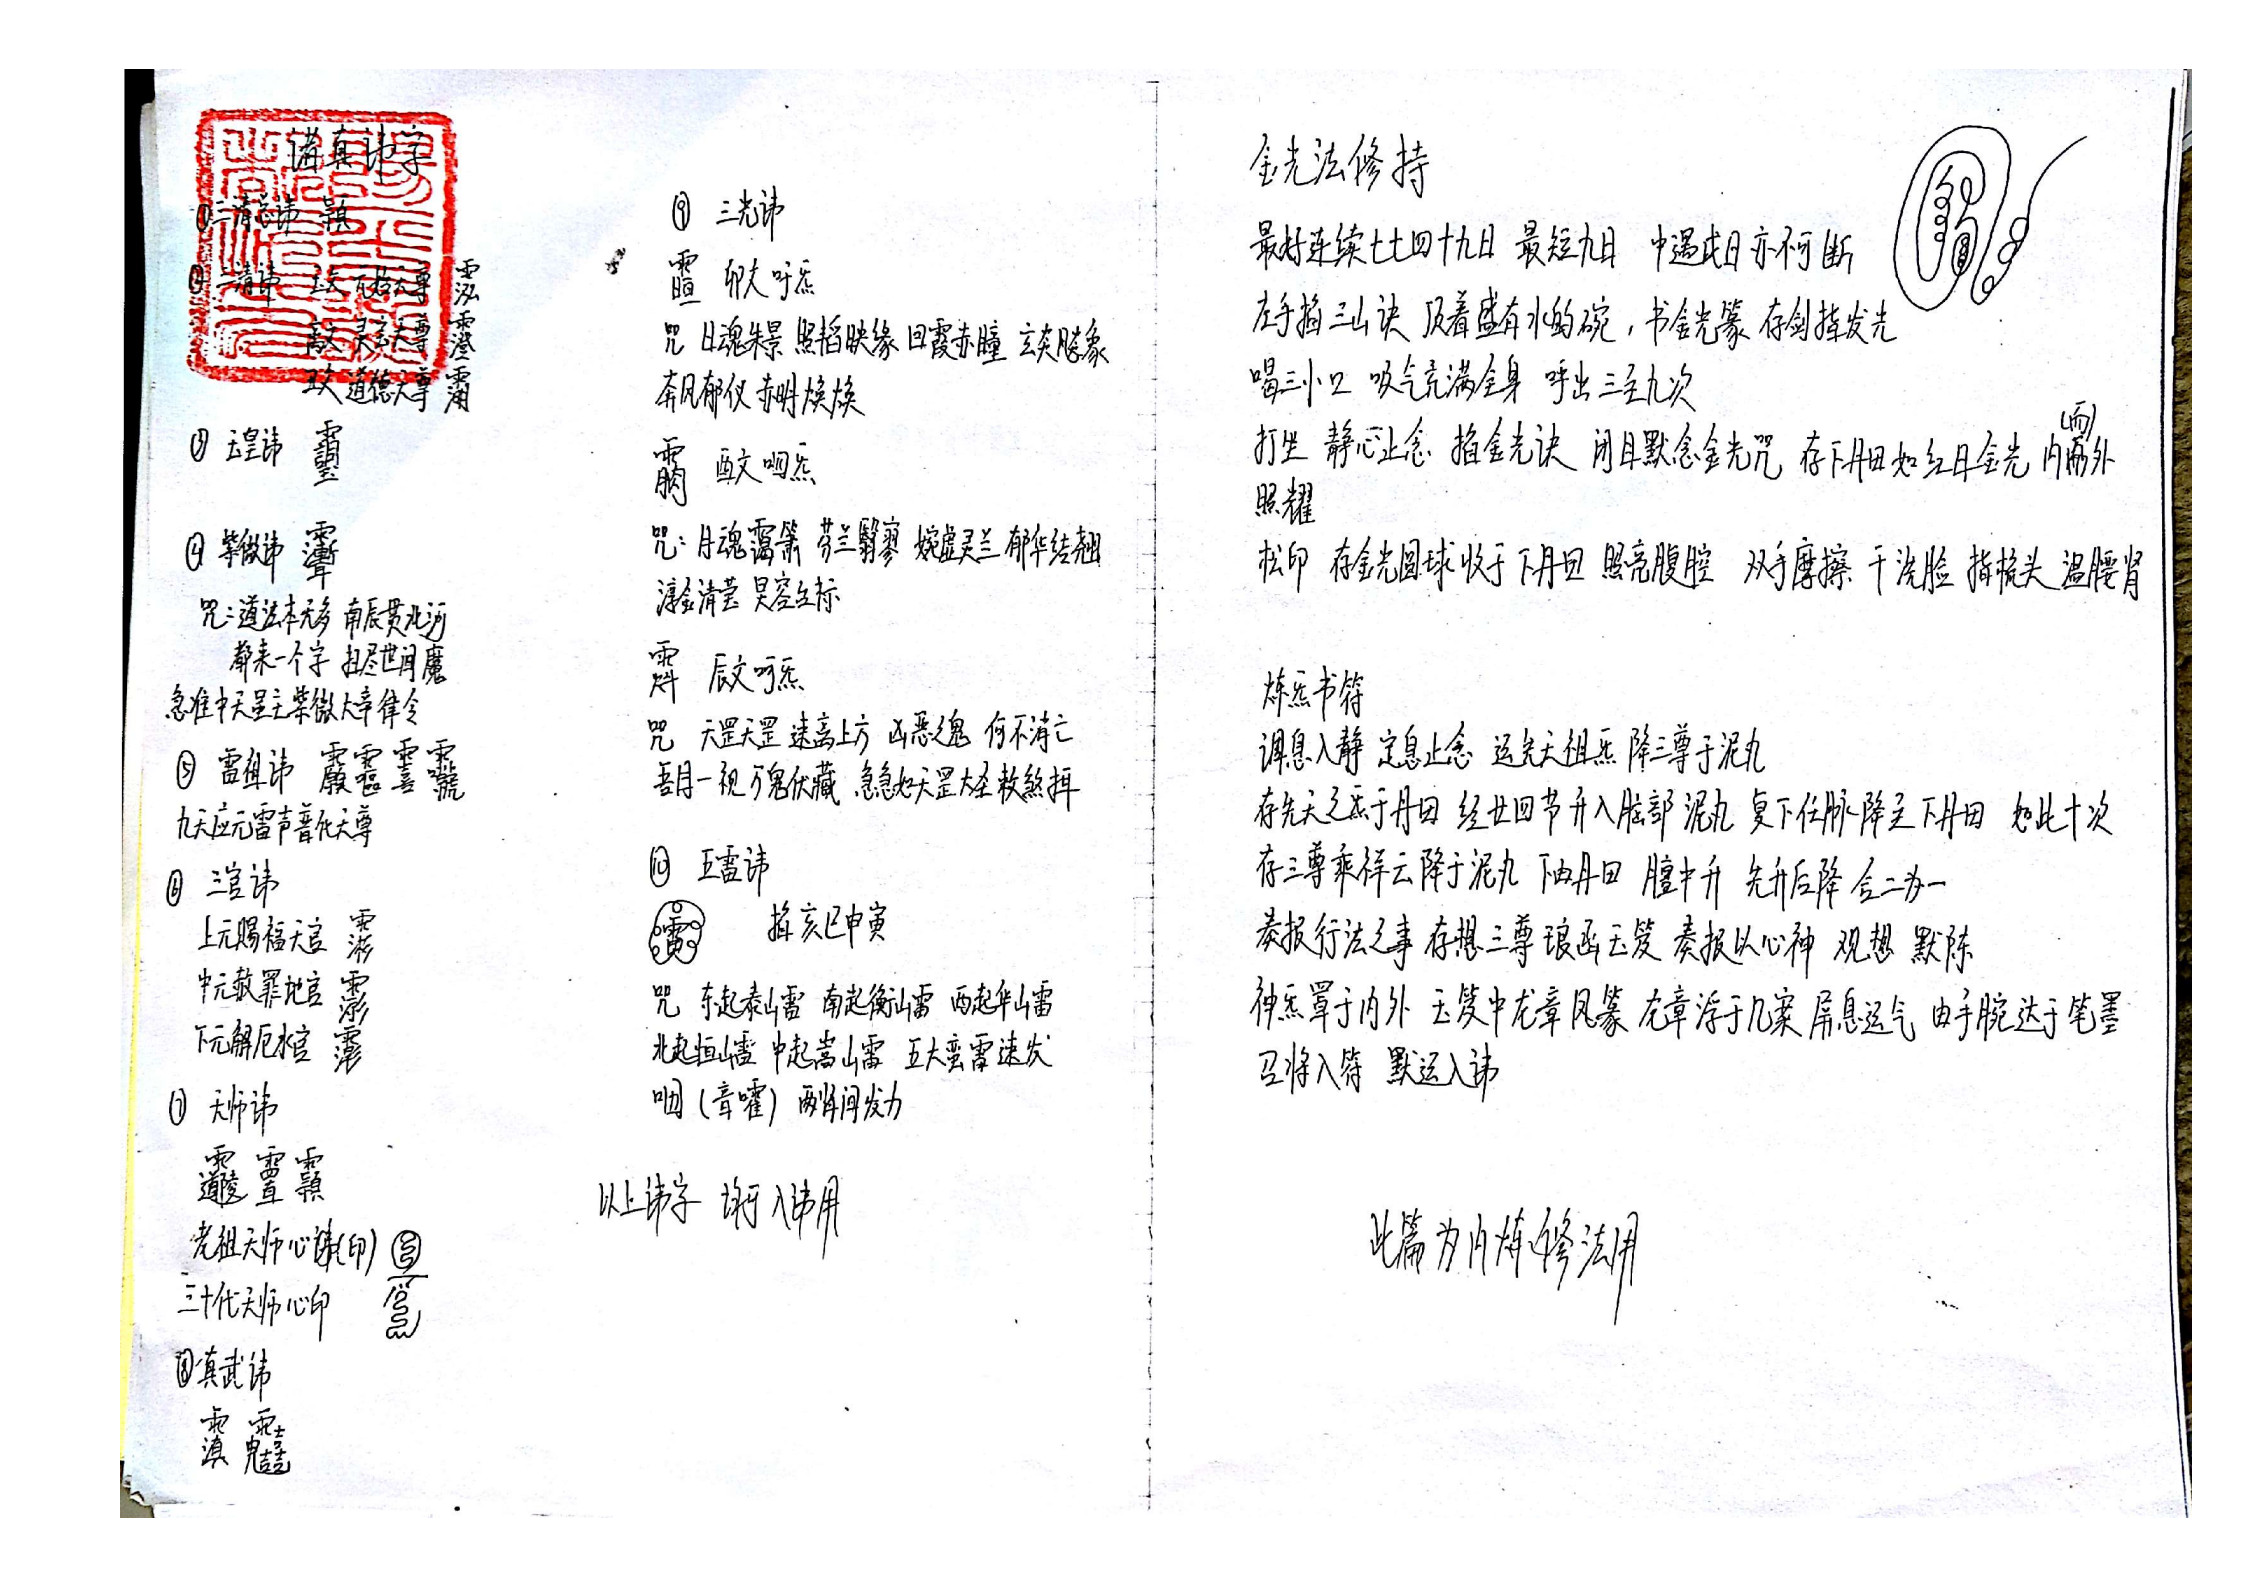 诸真讳字
①三清总讳
②三清讳 玉文 元始天尊
高文 灵宝天尊
玉文 道德天尊
③ 玉皇讳
④ 紫微讳
咒:道法本无多 南辰贯北河
都来一个字 扫尽世间魔
急准中天星主紫微大帝律令
⑤ 雷祖讳
九天应元雷声普化天尊
⑥ 三官讳
上元赐福天官
中元赦罪地官
下元解厄水官
⑦ 天师讳
老祖天师心讳(印)
三十代天师心印
⑧真武讳
⑨ 三光讳
卯文 呼炁
咒 日魂朱景 照韬映缘 回霞赤瞳 玄炎飚象
奔风郁仪 赤明焕焕
酉文 呬炁
咒:月魂霭箫 芬兰翳寥 婉虚灵兰 郁华结翘
淳金清莹 炅容台标
辰文 呵炁
咒 天罡天罡 速离上方 凶恶之鬼 何不消亡
吾目一视 万鬼伏藏 急急如天罡大圣敕煞摄
⑩ 五雷讳
掐亥巳申寅
咒 东起泰山雷 南起衡山雷 西起华山雷
北起恒山雷 中起嵩山雷 五大蛮雷速发
(音嚯) 两肾间发力
以上讳字 均可入讳用
金光法修持
最好连续七七四十九日 最短九日 中遇戊日亦不可断
左手掐三山诀 顶着盛有水的碗,书金光篆 存剑掉发光
喝三小口 吸气充满全身 呼出三至九次
打坐 静心止念 掐金光诀 闭目默念金光咒 存下丹田如红日金光 内(而)外
照耀
松印 存金光圆球收于下丹田 照亮腹腔 双手摩擦 干洗脸 指梳头 温腰肾
炼炁书符
调息入静 定息止念 运先天祖炁 降三尊于泥丸
存先天之炁于丹田 经廿四节升入脑部 泥丸 复下任脉降至下丹田 如此十次
存三尊乘祥云降于泥丸 下由丹田 膻中升 先升后降 合二为一
奏报行法之事 存想三尊 琅函玉笈 奏报以心神 观想 默陈
神炁罩于内外 玉笈中龙章凤篆 龙章浮于几案 屏息运气 由手腕达于笔墨
召将入符 默运入讳
此篇为内炼修法用